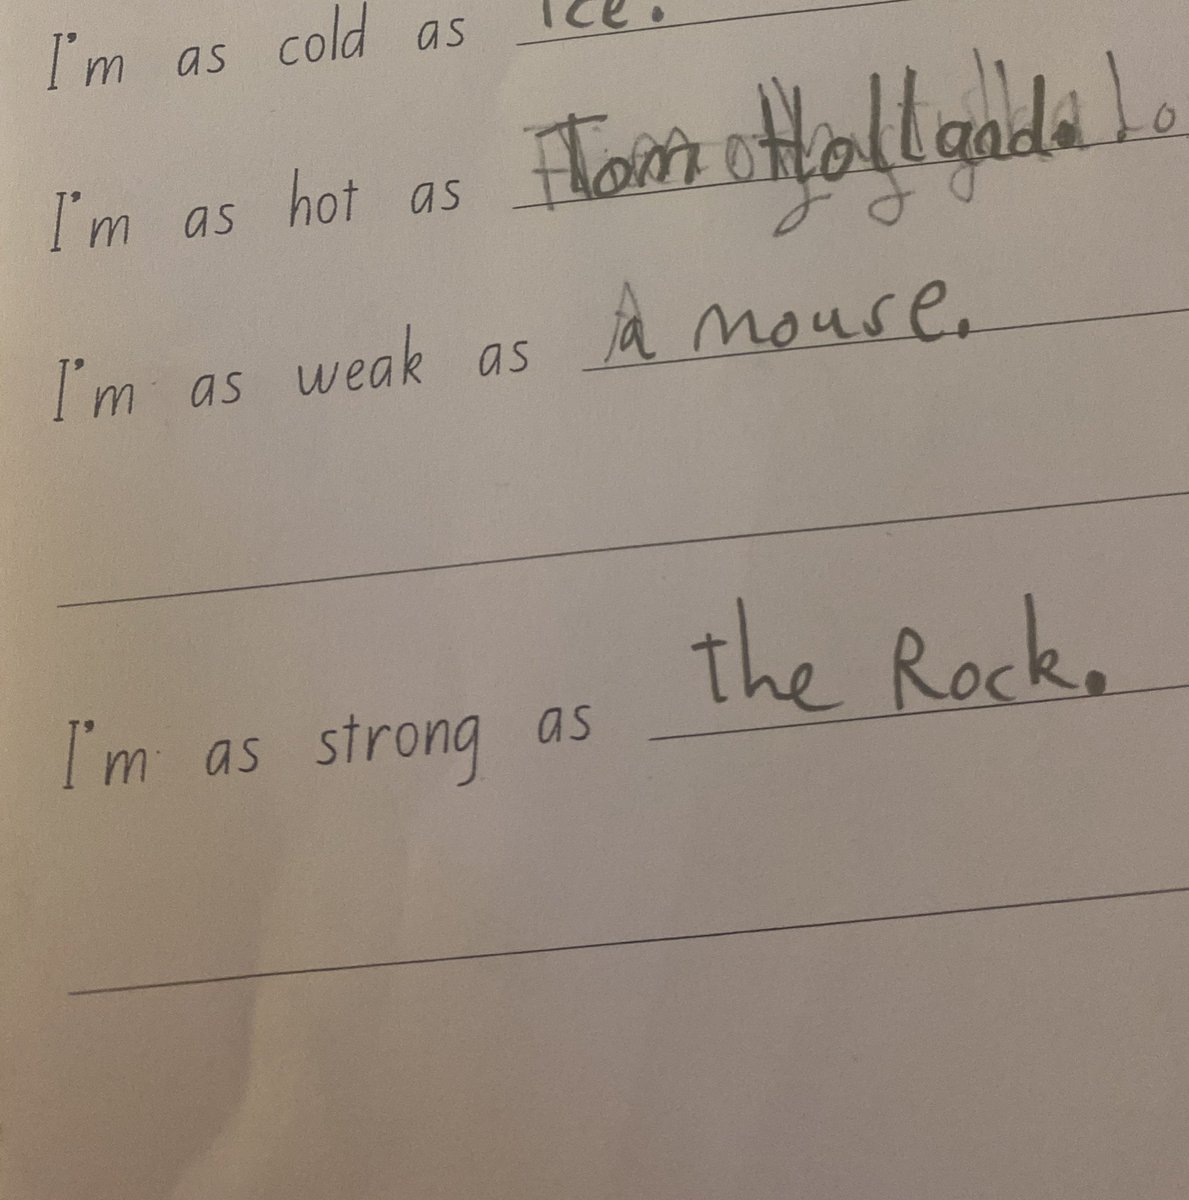 I'm as cold as ice.
I'm as hot as Tom Holland.
I'm as weak as a mouse.
I'm as strong as the Rock.